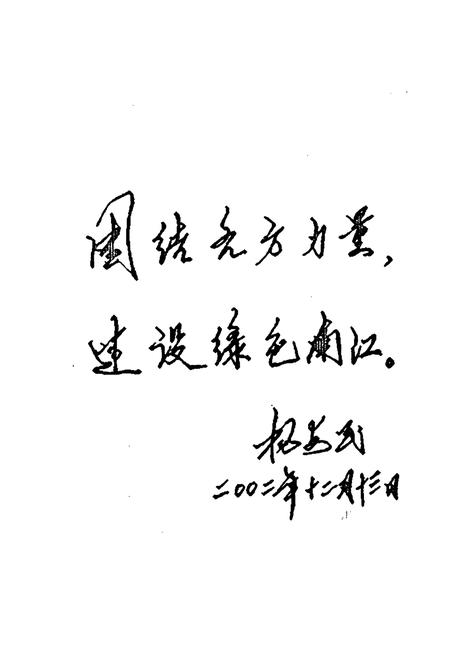 团结各方力量，
建设绿色南江。
杨 民
二00二年十二月十三日